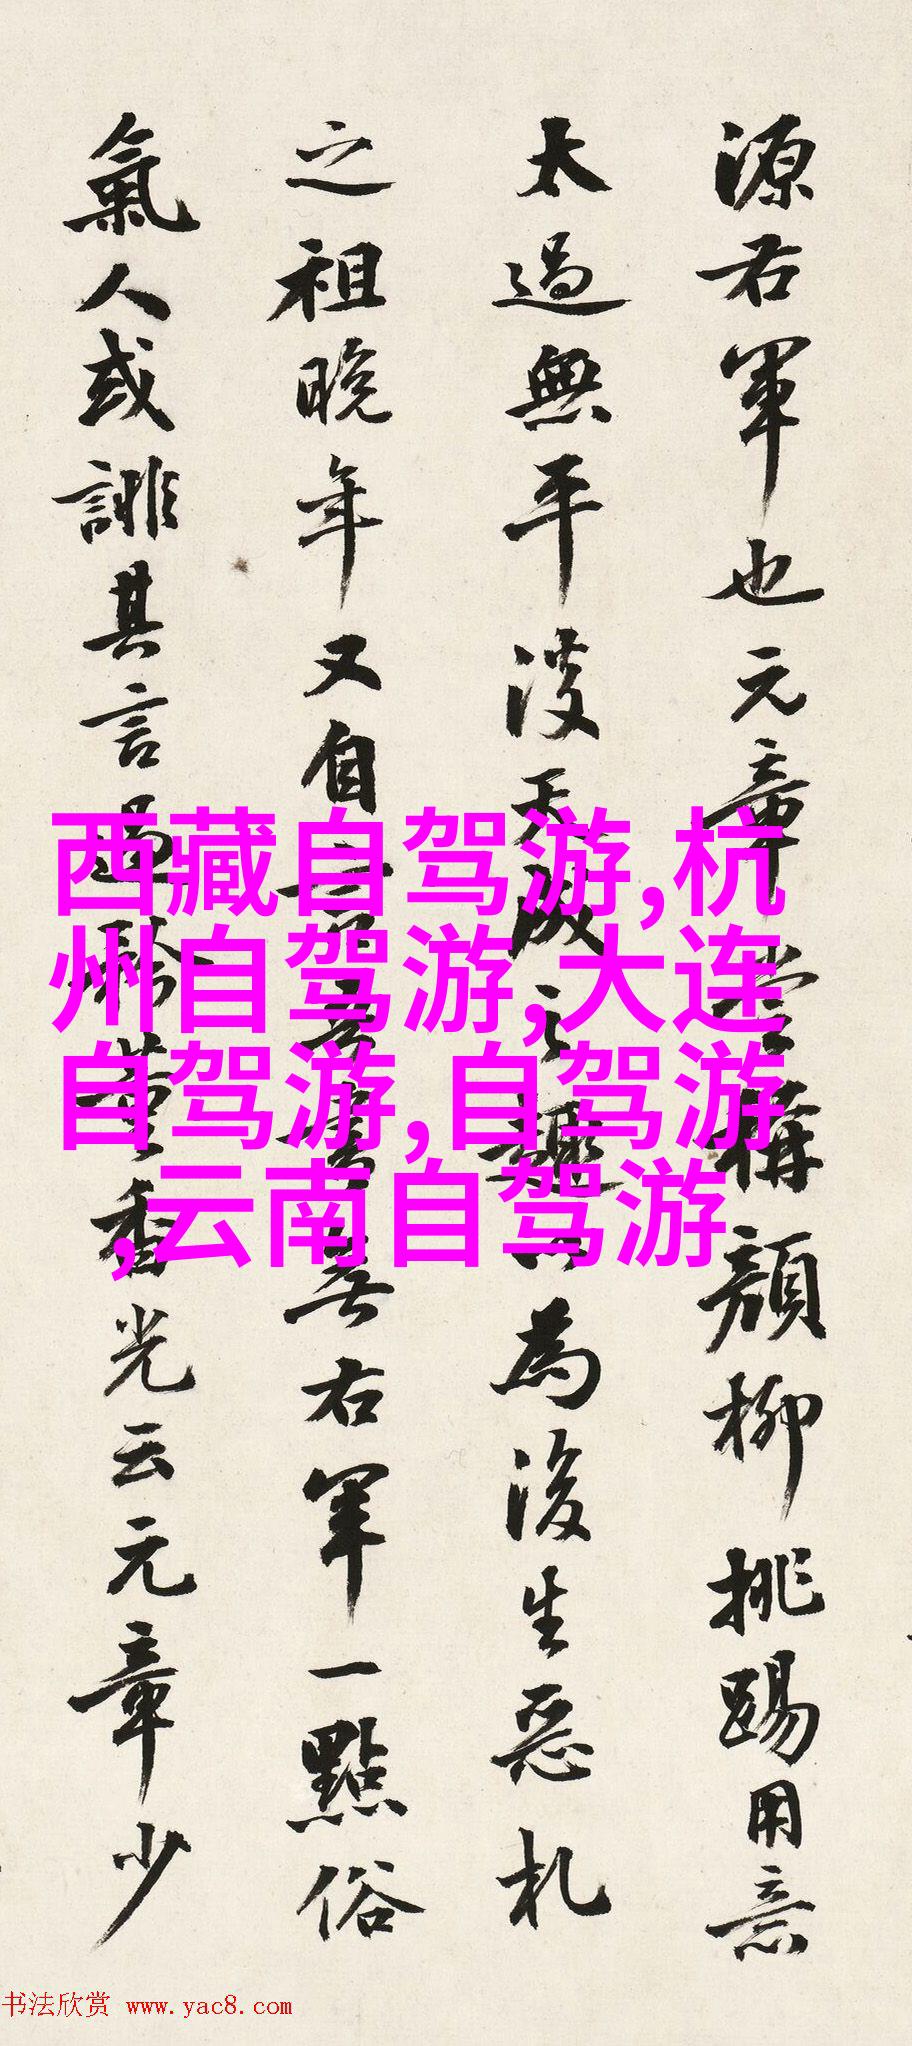 源右軍也元章嘗稱顏柳挑踢用意
太過無平淡天成之趣以為後生惡札
之祖晚年又自言吾書無右軍一點俗
氣人或誹其言過矜董香光云元章少
西藏自驾游,杭
州自驾游,大连
自驾游,自驾游
,云南自驾游
书法欣赏 www.yac8.com